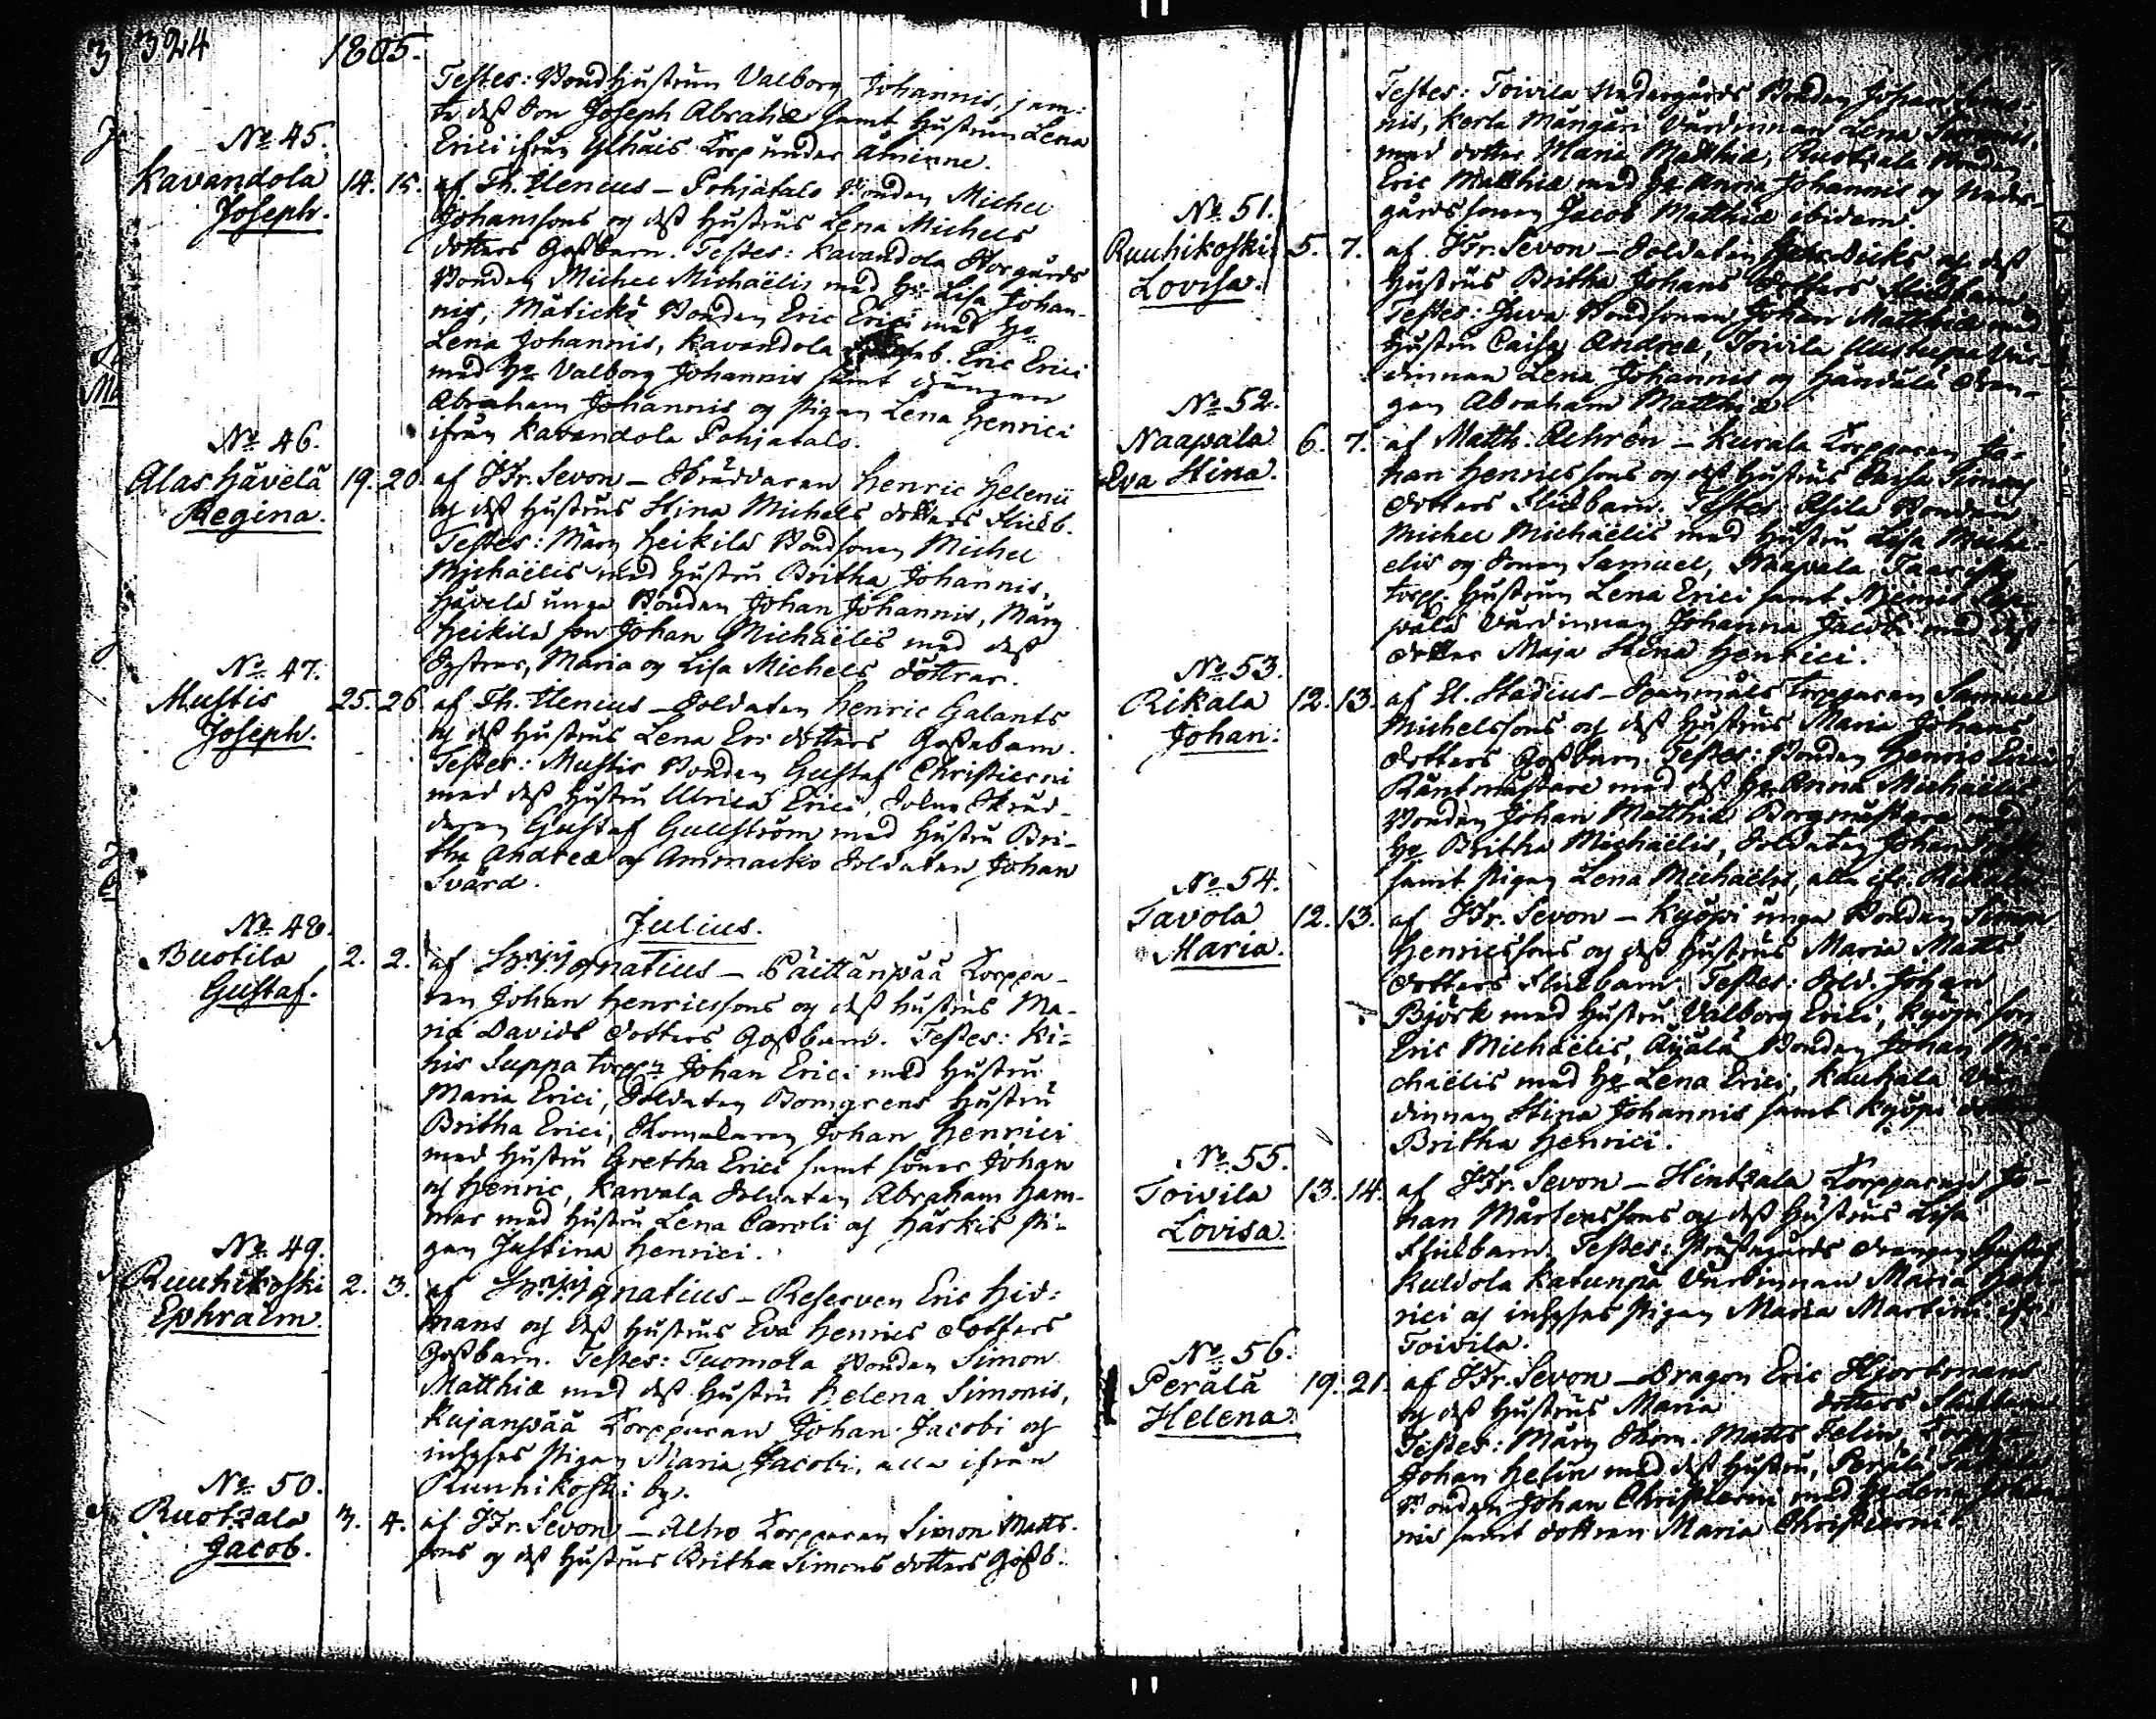 324
1805.
Testes: Bondhustrun Valborg Johannis, jem-
te dess Son Joseph Abrahæ samt Hustrun Lena
Erici ifrån Torp under
No 45.
Kavandola 14. 15. af Th. Ilenius – Pohjatalo Bonden Michel
Joseph. Johanssons og dess Hustrus Lena Michels
dotters Gossbarn. Testes: Kavandola Storgårds
Bonden Michel Michaëlis med H:o Lisa Johan-
nis, Mäticke Bonden Eric Erici med H:o
Lena Johannis, Kavandola Eric Erici
med H:o Valborg Johannis samt drängen
Abraham Johannis og Pigan Lena Henrici
ifrån Kavandola Pohjatalo.
No 46.
Alas Hävelä 19. 20. af Fr. Sevon – Skräddaren Henric Helenii
Regina. og dess Hustrus Stina Michels dotters Flickb.
Testes: Märy Heikilä Bondsonen Michel
Michaëlis med Hustru Britha Johannis,
Hävelä unga Bonden Johan Johannis, Märy
Heikilä son Johan Michaëlis med dess
Systrar, Maria og Lisa Michels döttrar.
No 47.
Mustis 25. 26. af Th. Ilenius – Soldaten Henric Galants
Joseph. og dess Hustrus Lena Ers dotters Gossebarn.
Testes: Mustis Bonden Gustaf Christierni
med dess Hustru Ulrica Erici, Skräd-
daren Gustaf Gullström med Hustru Bri-
tha Andreæ og Ammacko Soldaten Johan
Svärd.
Julius.
No 48.
Buotila 2. 2. af Ignatius – Päittänpää Torppa-
Gustaf. ren Johan Henricssons og dess Hustrus Ma-
ria Davids dotters Gossbarn. Testes: Ki-
his Suppa torpp:n Johan Erici med Hustru
Maria Erici, Soldaten Bomgrens Hustru
Britha Erici, Skomakaren Johan Henrici
med Hustru Gretha Erici samt söner Johan
og Henric, Karvala Soldaten Abraham Ham-
mar med Hustru Lena Caroli og Härkis Pi-
gan Justina Henrici.
No 49.
Ruuhikoski 2. 3. af Ignatius – Reserven Eric Hid-
Ephraim. mans og dess Hustrus Eva Henrics dotters
Gossbarn. Testes: Tuomola Bonden Simon
Matthiæ med dess Hustru Helena Simonis,
Kujanpää Torpparen Johan Jacobi og
inhyses Pigan Maria Jacobi, alla ifrån
Ruuhikoski by.
No 50.
Ruotzala 3. 4. af Fr. Sevon – Alho Torpparen Simon Matts-
Jacob. sons og dess Hustrus Britha Simons dotters Gossb.
Testes: Toivila Nedergårds Bonden Johan Simo-
nis, Kerla Mangäri Värdinnan Lena
med dotter Maria Matthiæ, Ruotzala Bonden
Eric Matthiæ med H:o Anna Johannis og Neder-
gårds sonen Jacob Matthiæ ibidem.
No 51.
Ruuhikoski 5. 7. af Fr. Sevon – Soldaten og dess
Lovisa. Hustrus Britha Johans dotters Flickbarn
Testes: Juva Bondsonen Johan Matthiæ med
Hustru Caisa Andreæ, Toivila Vär-
dinnan Lena Johannis og Händälä drän-
gen Abraham Matthiæ
No 52.
Naapala 6. 7. af Matth. Achrén – Kurala Torpparen Jo-
Eva Stina. han Henricssons og dess Hustrus Caisa Simons
dotters Flickbarn. Testes: Bonden
Michel Michaëlis med Hustru Lisa Micha-
elis og Sonen Samuel, Naapala
torpp. Hustrun Lena Erici samt
Värdinnan Johanna Jacobi med dess
dotter Maja Stina Henrici.
No 53.
Rikala 12. 13. af El. Stadius – Torpparen Samuel
Johan. Michelssons og dess Hustrus Maria Johans
dotters Gossbarn. Testes: Bonden Henric Erici
Räntmästare med dess H:o Anna Michaëlis,
Bonden Johan Matthiæ Borgmästare med
H:o Britha Michaëlis, Soldaten Johan
samt Pigan Lena Michaëlis, alla ifr. Rikala
No 54.
Tavola 12. 13. af Fr. Sevon – Kyöpi unga Bonden Simon
Maria. Henricssons og dess Hustrus Maria Matts
dotters Flickbarn. Testes: Sold. Johan
Björk med Hustru Valborg Erici, Kyöpi son
Eric Michaëlis, Äyälä Bonden Johan Mi-
chaëlis med H:o Lena Erici, Kauhala Vär-
dinnan Stina Johannis samt Kyöpi
Britha Henrici.
No 55.
Toivila 13. 14. af Fr. Sevon – Hintzala Torpparens Jo-
Lovisa. han Mårtenssons og dess Hustrus Lisa
Flickbarn. Testes: Prästgårds drängen Gustaf,
Kuldola Katunpä Värdinnan Maria Hen-
rici og inhyses Pigan Maria Martini ifr.
Toivila.
No 56.
Perälä 19. 21. af Fr. Sevon – Dragon Eric Hjortmans
Helena. og dess Hustrus Maria dotters Flickbarn
Testes: Märy Skom. Matts Felin,
Johan Helin med dess Hustru, Perälä
Bonden Johan Christierni med H:o Lena Johan-
nis samt dottren Maria Christierni.